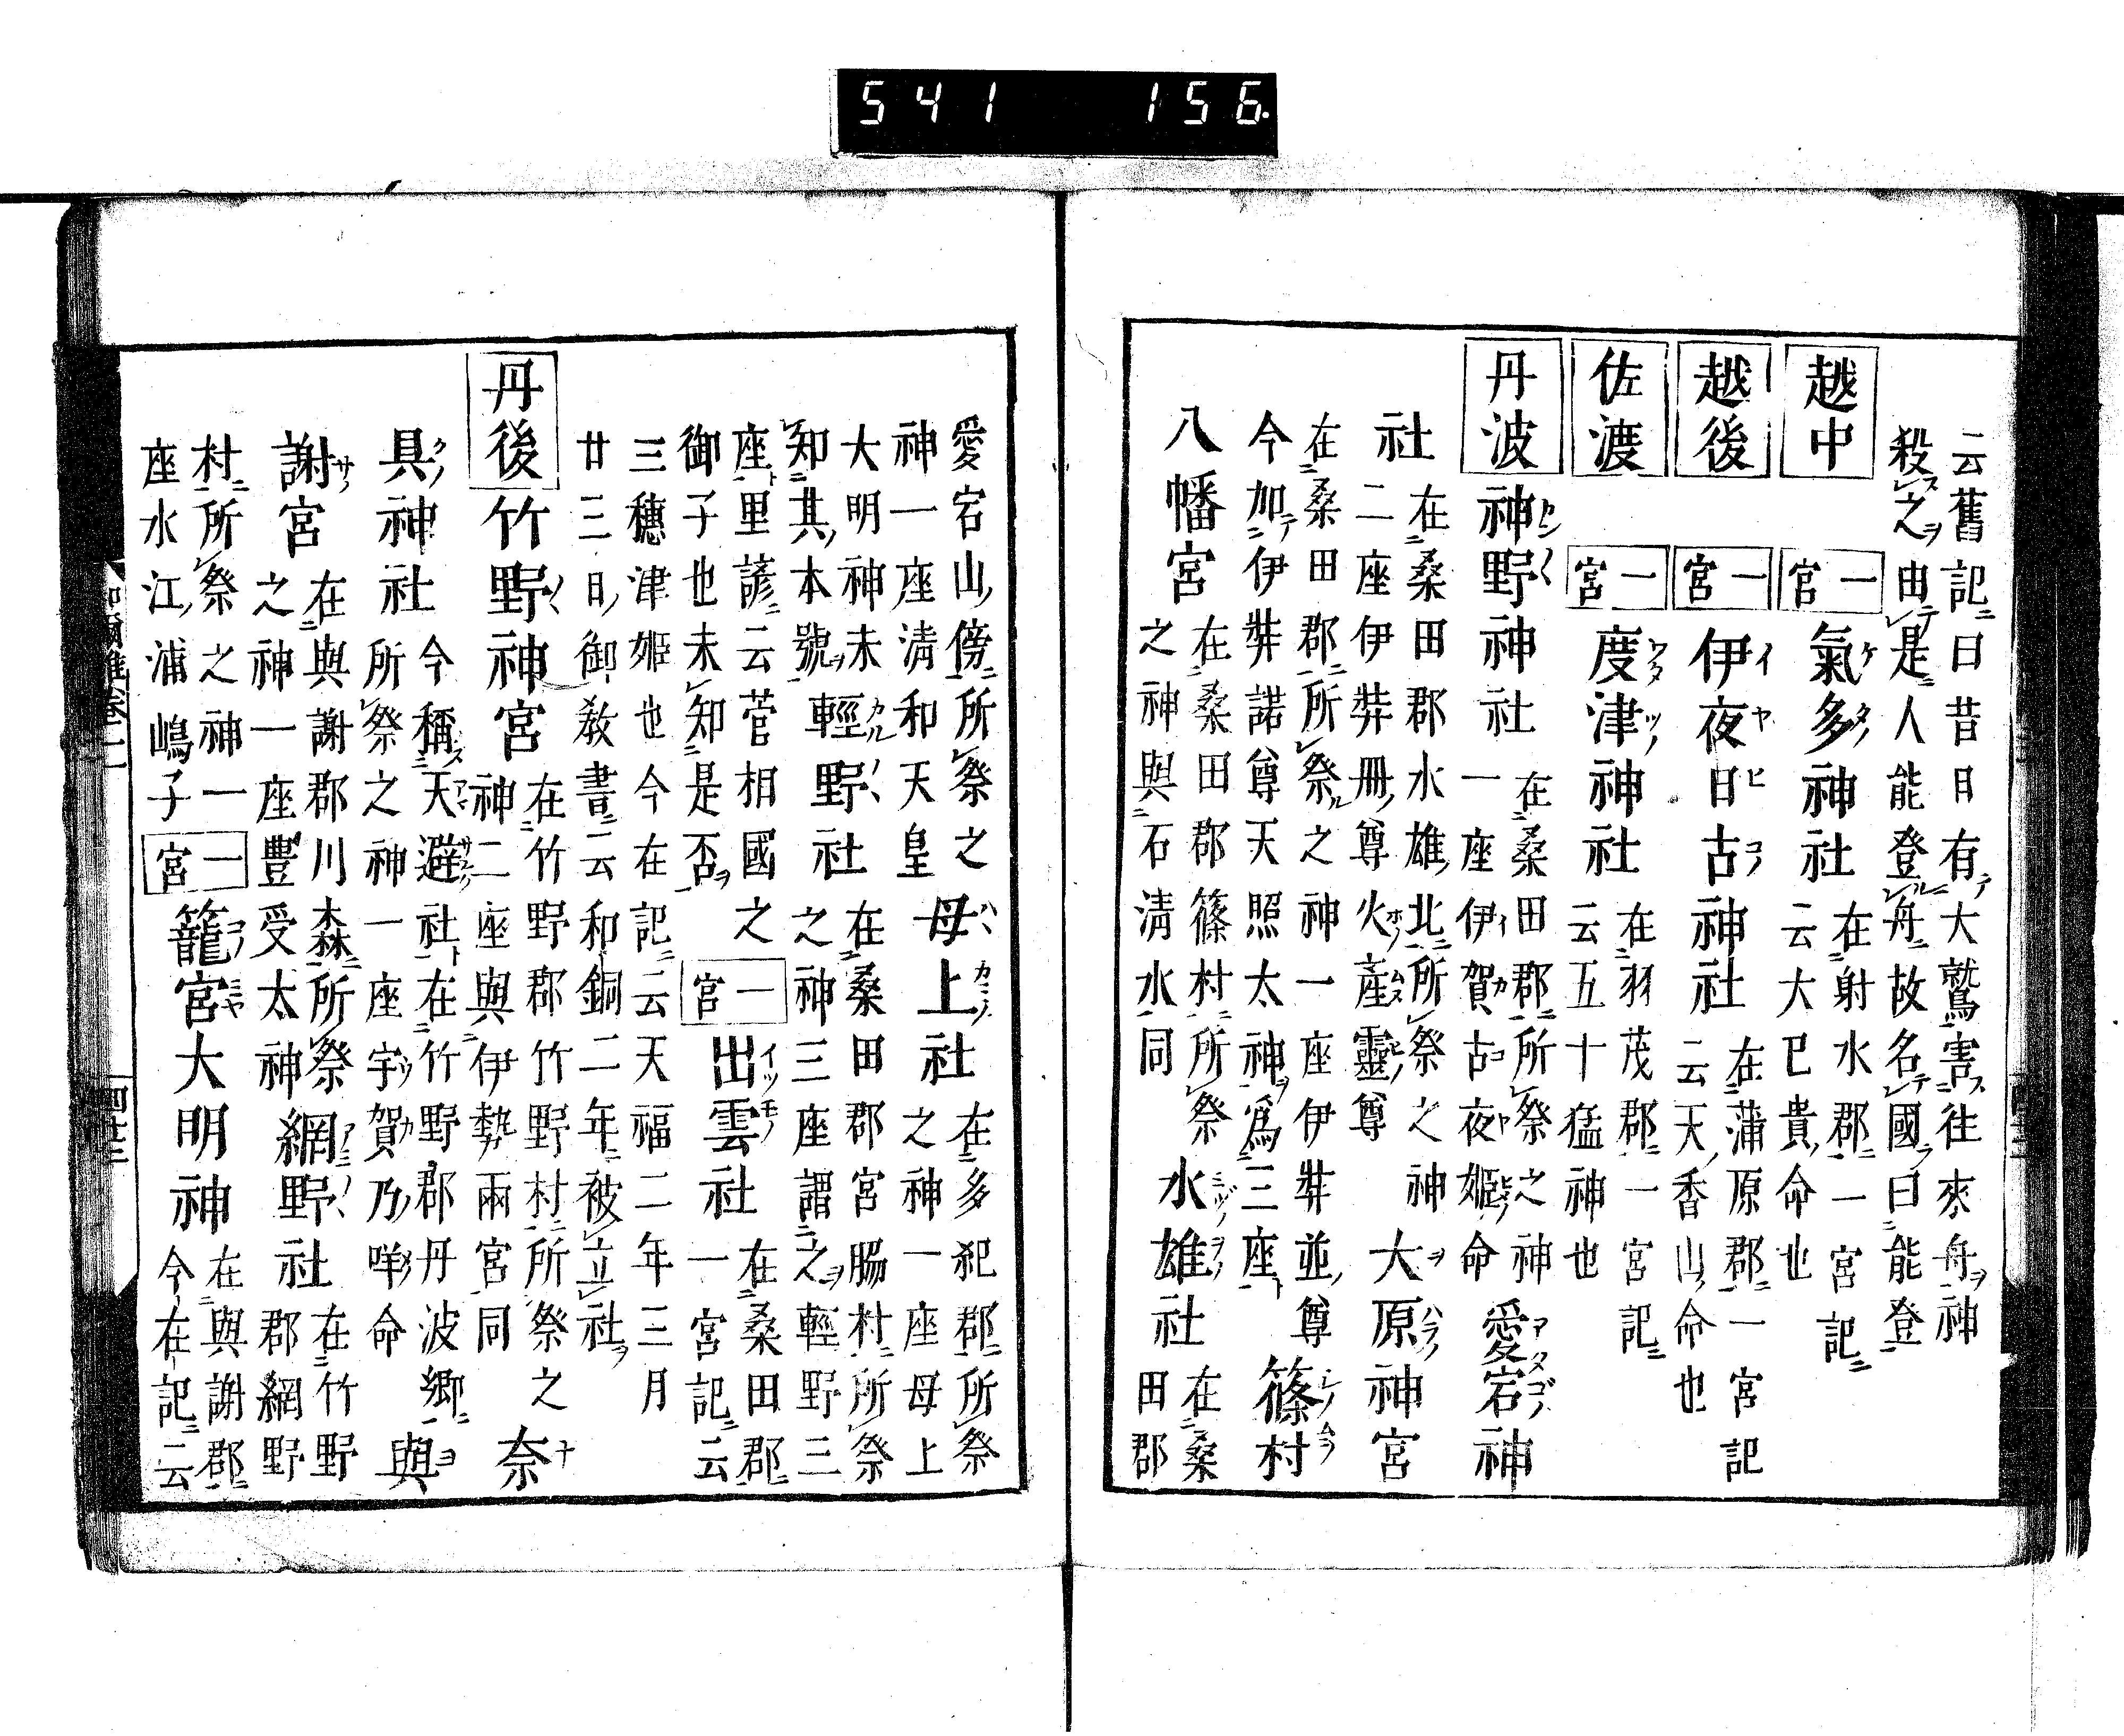 541 156
云舊記曰昔日有大鷲害往來舟神
殺之由是人能登舟故名國曰能登
越中 一宮 氣多神社 在射水郡一宮記
云大巳貴命也
越後 一宮 伊夜日古神社 在蒲原郡一宮記
云天香山命也
佐渡 一宮 度津神社 在羽茂郡一宮記
云五十猛神也
丹波 神野神社 在桑田郡所祭之神
一座伊賀古夜姬命 愛宕神
社 在桑田郡水雄北所祭之神
二座伊弉冊尊火產靈尊 大原神宮
在桑田郡所祭之神一座伊弉並尊
今加伊弉諾尊天照太神爲三座 篠村
八幡宮 在桑田郡篠村所祭
之神與石清水同 水雄社 在桑
田郡
愛宕山傍所祭之
神一座清和天皇 母上社 在多犯郡所祭
之神一座母上
大明神未
知其本號 輕野社 在桑田郡宮腸村所祭
之神三座謂之輕野三
座里諺云菅相國之
御子也未知是否 一宮 出雲社 在桑田郡
一宮記云
三穗津姬也今在記云天福二年三月
廿三日御教書云和銅二年被立社
丹後 竹野神宮 在竹野郡竹野村所祭之
神二座與伊勢兩宮同 奈
具神社 今稱天避社在竹野郡丹波鄉
所祭之神一座宇賀乃咩命 與
謝宮 在與謝郡川森所祭
之神一座豐受太神 網野社 在竹野
郡網野
村所祭之神一
座水江浦嶋子 一宮 籠宮大明神 在與謝郡
今在記云